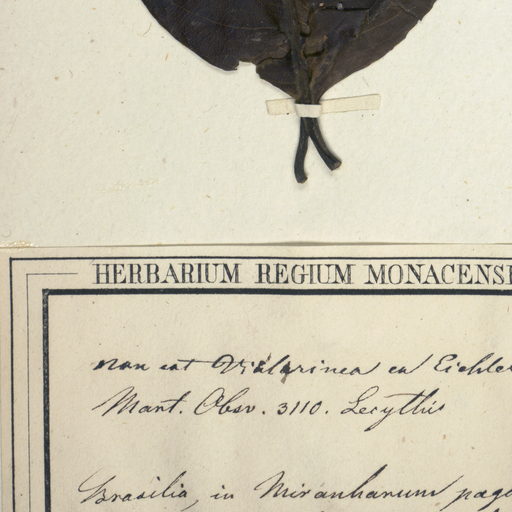 HERBARIUM REGIUM MONACENS
non est ex Eichler
Mart. Obsv. 3110. Lecythis
Brasilia, in Miranharum